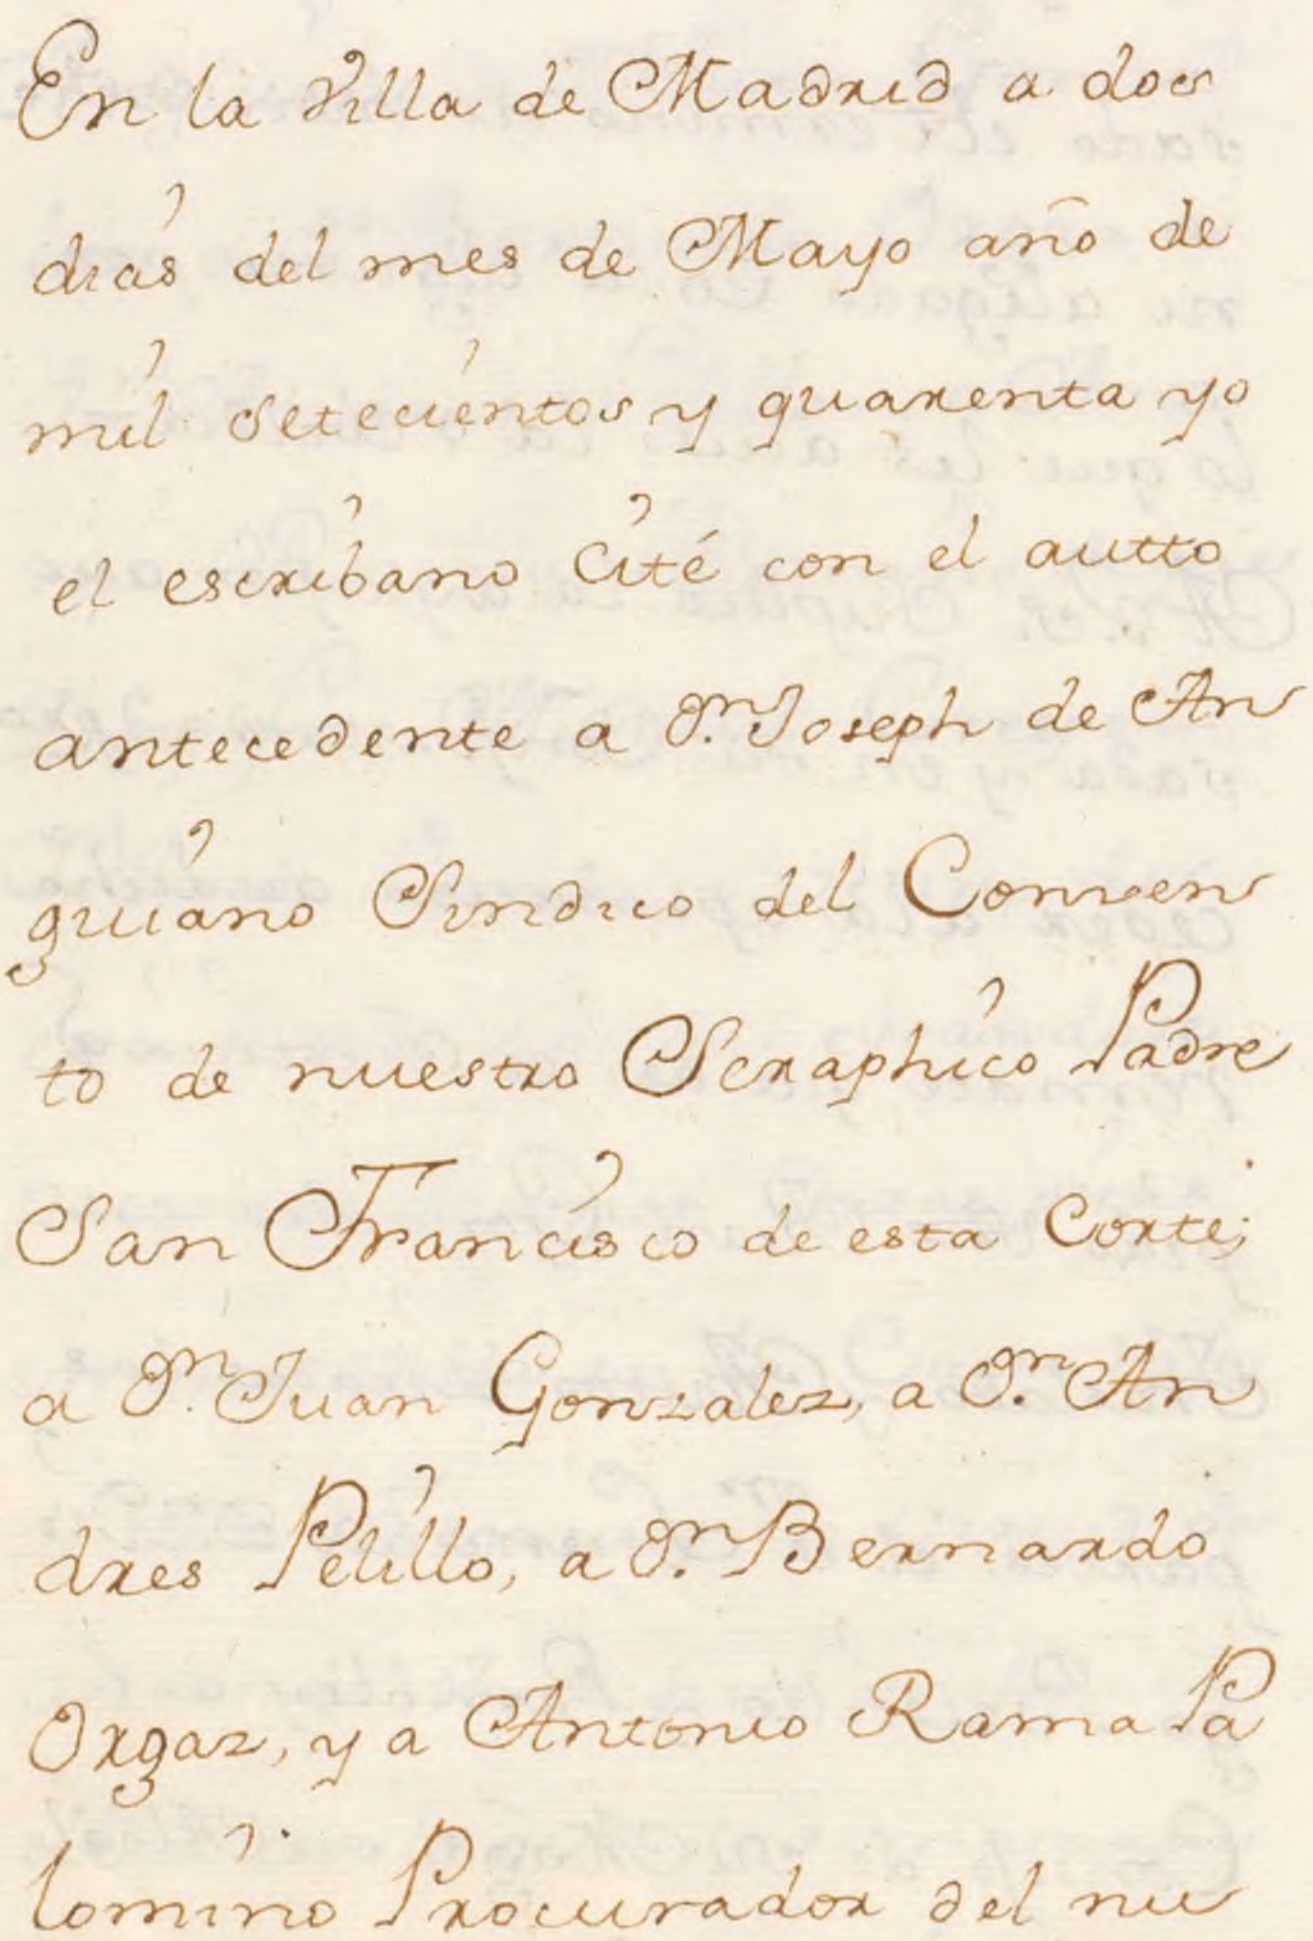 En la Villa de Madrid a dos
dias del mes de Mayo año de
mil setecientos y quarenta yo
el escribano Cité con el autto
antecedente a D.n Joseph de An
guiano Sindico del Conven
to de nuestro Seraphico Padre
San Francisco de esta Corte;
a D.n Juan Gonzalez, a D.n An
dres Pelillo, a D.n Bernardo
Orgaz, y a Antonio Rama Pa
lomino Procurador del nu